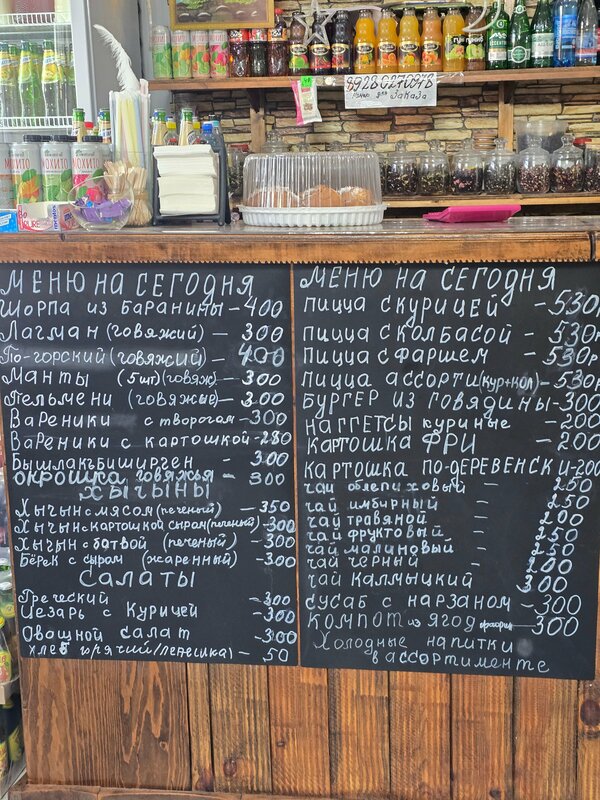 МОХИТО
МОХИТО
89286276978
ЗАКАЗА
МЕНЮ НА СЕГОДНЯ
Шорпа из баранины - 400
Лагман (говяжий) - 300
По-горский (говяжий) - 400
Манты (5 шт) (говяж) - 300
Пельмени (говяжые) - 300
Вареники с творогом - 300
Вареники с картошкой - 280
Бышлакъбиширген - 300
окрошка говяжья - 300
ХЫЧЫНЫ
Хычын с мясом (печеный) - 350
Хычын с картошкой сыром (печеный) - 300
Хычын с ботвой (печеный) - 300
Бёрек с сыром (жаренный) - 300
САЛАТЫ
Греческий - 300
Цезарь с курицей - 300
Овашной салат - 300
хлеб горячий/лепешка) - 50
МЕНЮ НА СЕГОДНЯ
ПИЦЦА С КУРИЦЕЙ - 530р
ПИЦЦА С КОЛБАСОЙ - 530р
ПИЦЦА С ФАРШЕМ - 530р
ПИЦЦА АССОРТИ (кур+кол) - 530р
БУРГЕР ИЗ ГОВЯДИНЫ - 300
НАГГЕТСЫ КУРИНЫЕ - 200
КАРТОШКА ФРИ - 200
КАРТОШКА ПО-ДЕРЕВЕНСКИ - 200
ЧАЙ облепиховый - 250
ЧАЙ имбирный - 250
ЧАЙ травяной - 200
ЧАЙ фруктовый - 250
ЧАЙ малиновый - 250
ЧАЙ черный - 200
ЧАЙ КАЛМЫЦКИЙ - 300
СУСАБ С НАРЗАНОМ - 300
КОМПОТ из ЯГОД - 300
Холодные напитки
в ассортименте